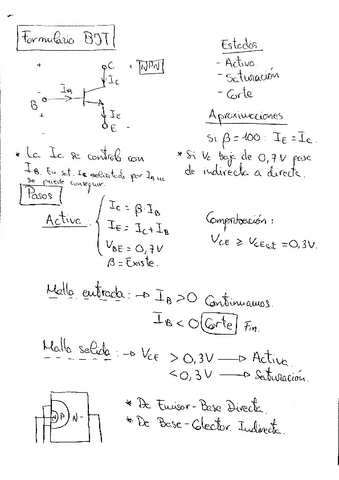 Formulario BJT
Estados
- Activa.
- Saturación
- Corte
+ C + NPN
B IB IC
IE
E
Aproximaciones
Si β = 100 : IE = IC.
* La IC se controla con
IB. En sat. IC solicitada por IB no
se puede conseguir.
* Si VC baja de 0,7V pasa
de indirecta a directa.
Pasos
Activa:
IC = β·IB
IE = IC + IB
VBE = 0,7V
β = Existe.
Comprobación:
VCE ≥ VCEsat = 0,3V.
Malla entrada: → IB > 0 Continuamos.
IB < 0 Corte Fin.
Malla salida: → VCE > 0,3V → Activa.
< 0,3V → Saturación.
N P N-
* De Emisor-Base Directa.
* De Base-Colector Indirecta.